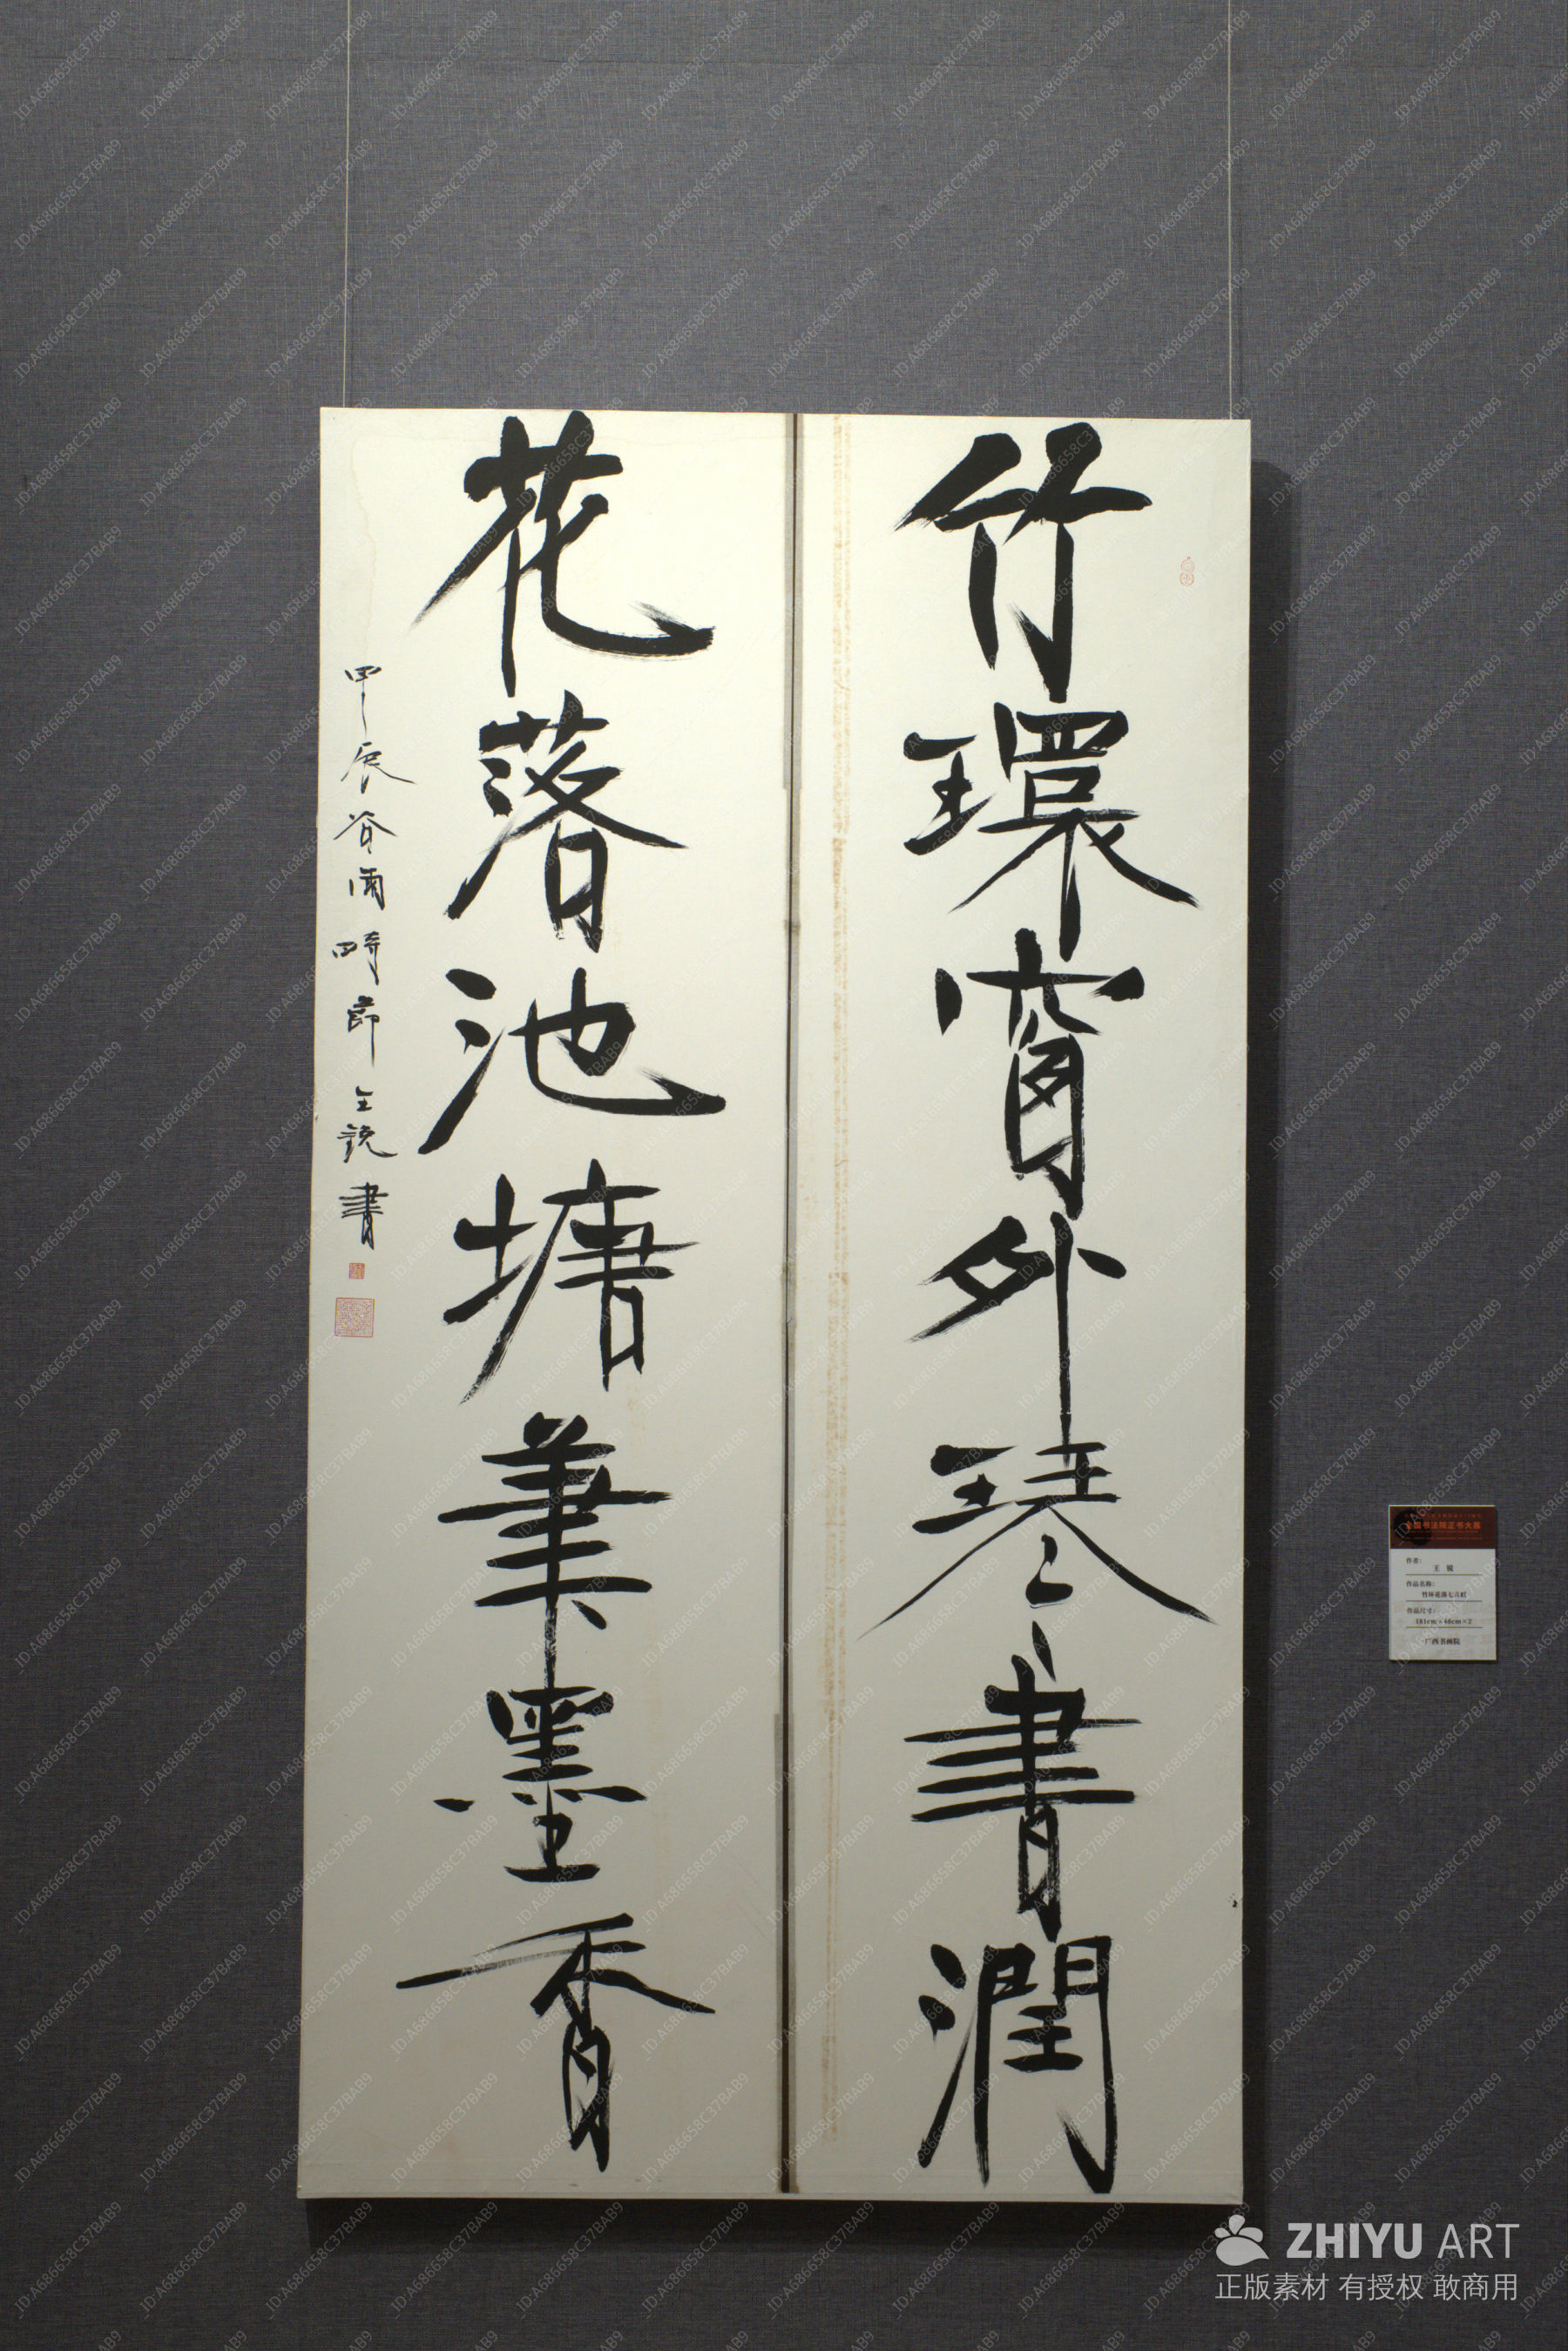 竹環窗外琴書潤
花落池塘筆墨香
甲辰谷雨時節王銳書
全国书法院正书大展
作者：
王 锐
作品名称：
竹环花落七言联
作品尺寸：
181cm×46cm×2
广西书画院
ZHIYU ART
正版素材 有授权 敢商用
ID:A686658C37BAB9